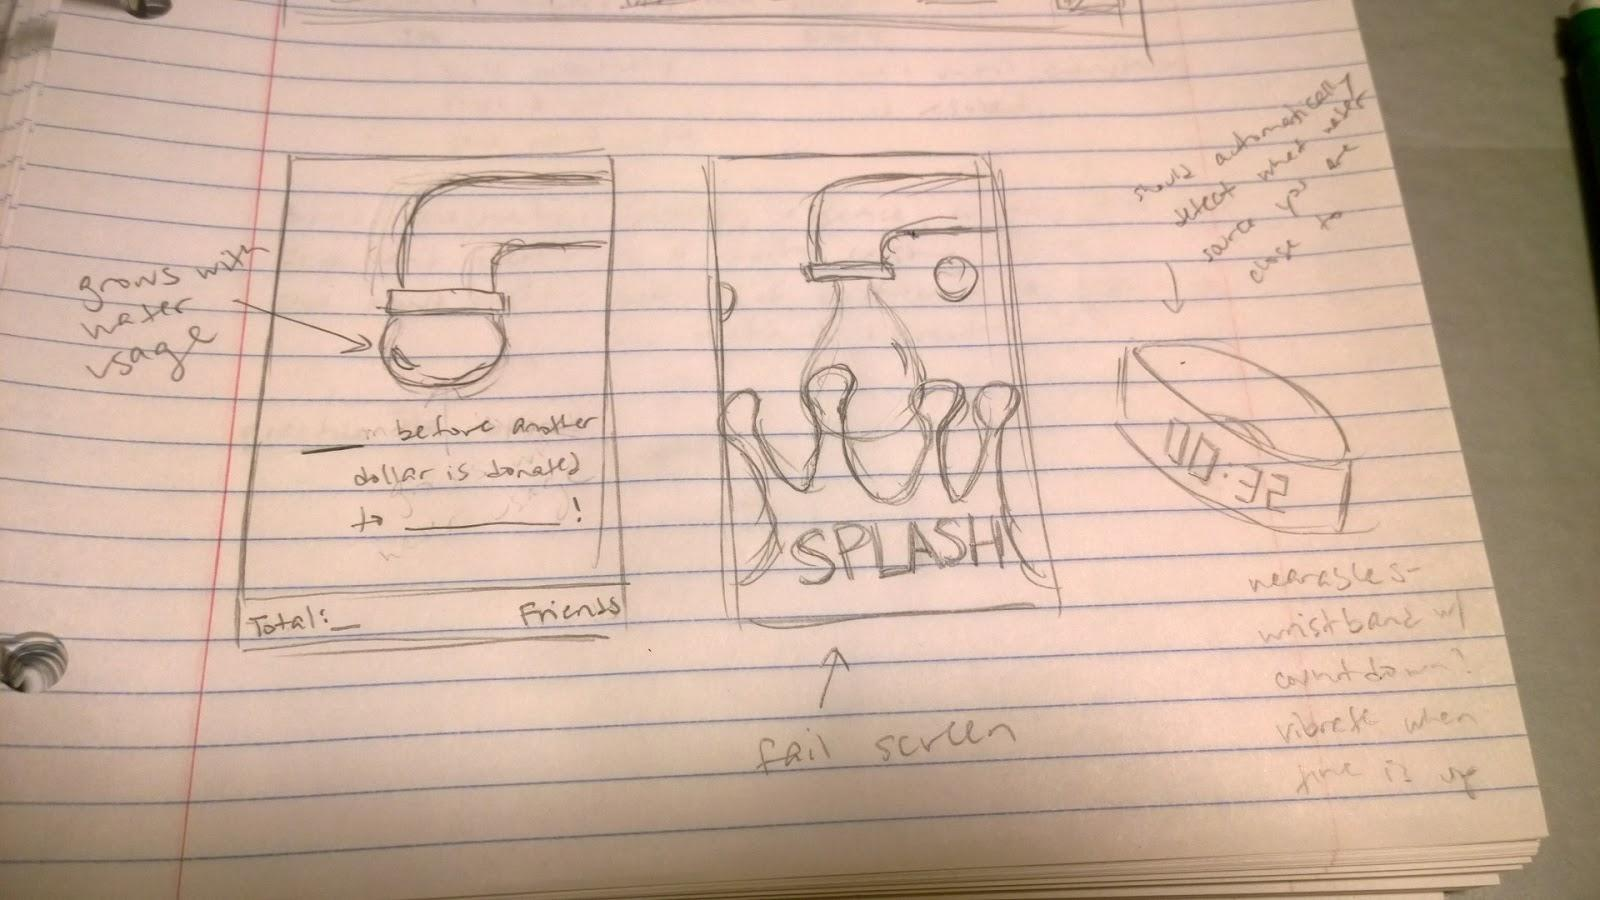 grows with
water
usage
___ before another
dollar is donated
to ________!
Total:_
Friends
SPLASH
fail screen
should automatically
detect what water
source you are
close to
00:35
wearables-
wristband w/
countdown?
vibrate when
time is up